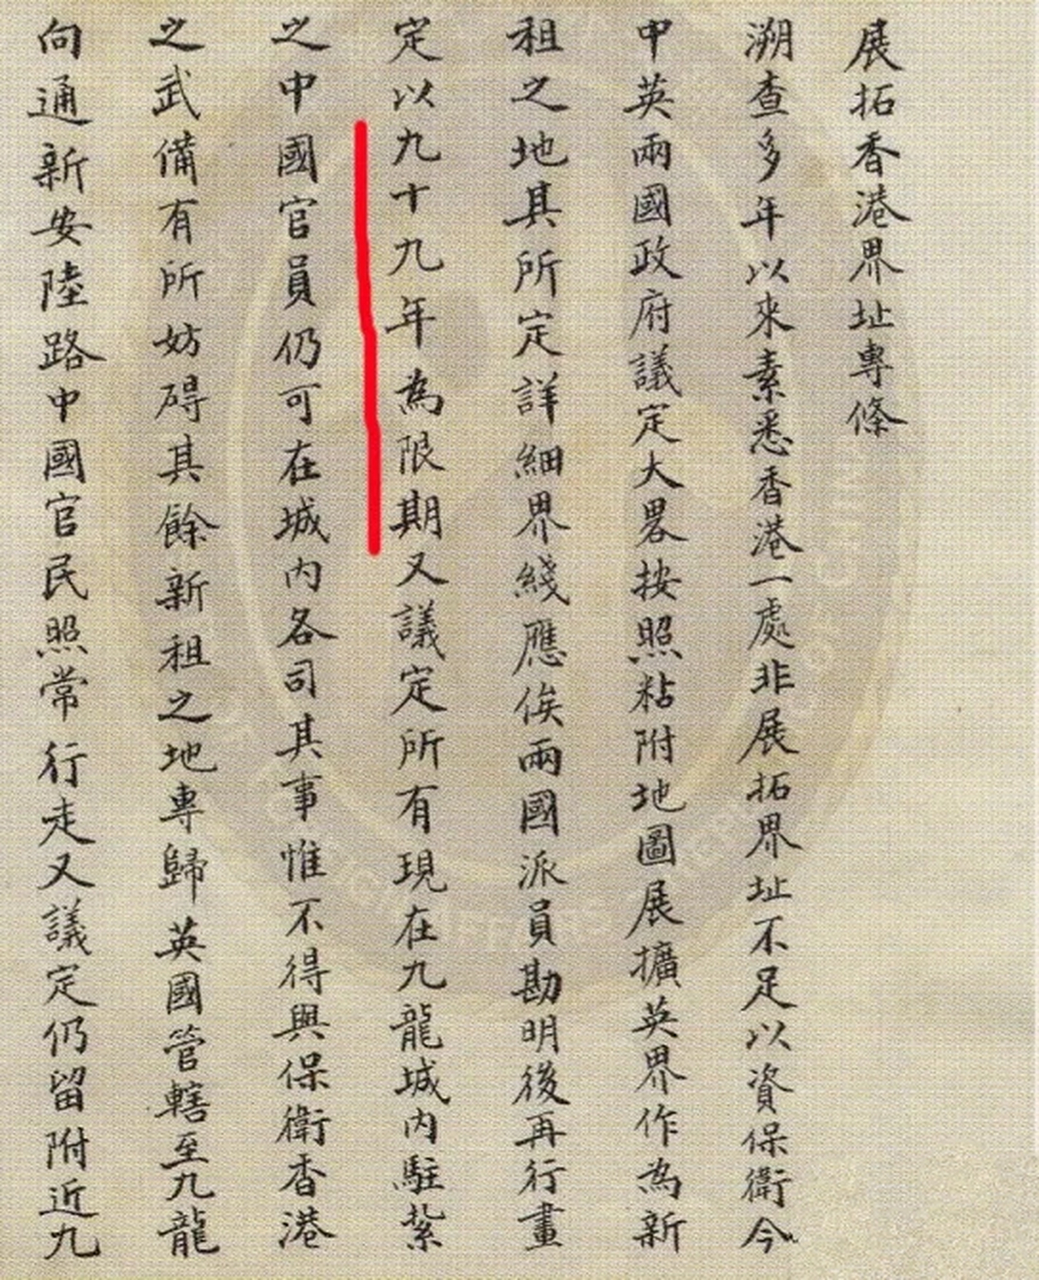 展拓香港界址專條
溯查多年以來素悉香港一處非展拓界址不足以資保衛今
中英兩國政府議定大畧按照粘附地圖展擴英界作為新
租之地其所定詳細界綫應俟兩國派員勘明後再行畫
定以九十九年為限期又議定所有現在九龍城內駐紮
之中國官員仍可在城內各司其事惟不得與保衛香港
之武備有所妨碍其餘新租之地專歸英國管轄至九龍
向通新安陸路中國官民照常行走又議定仍留附近九